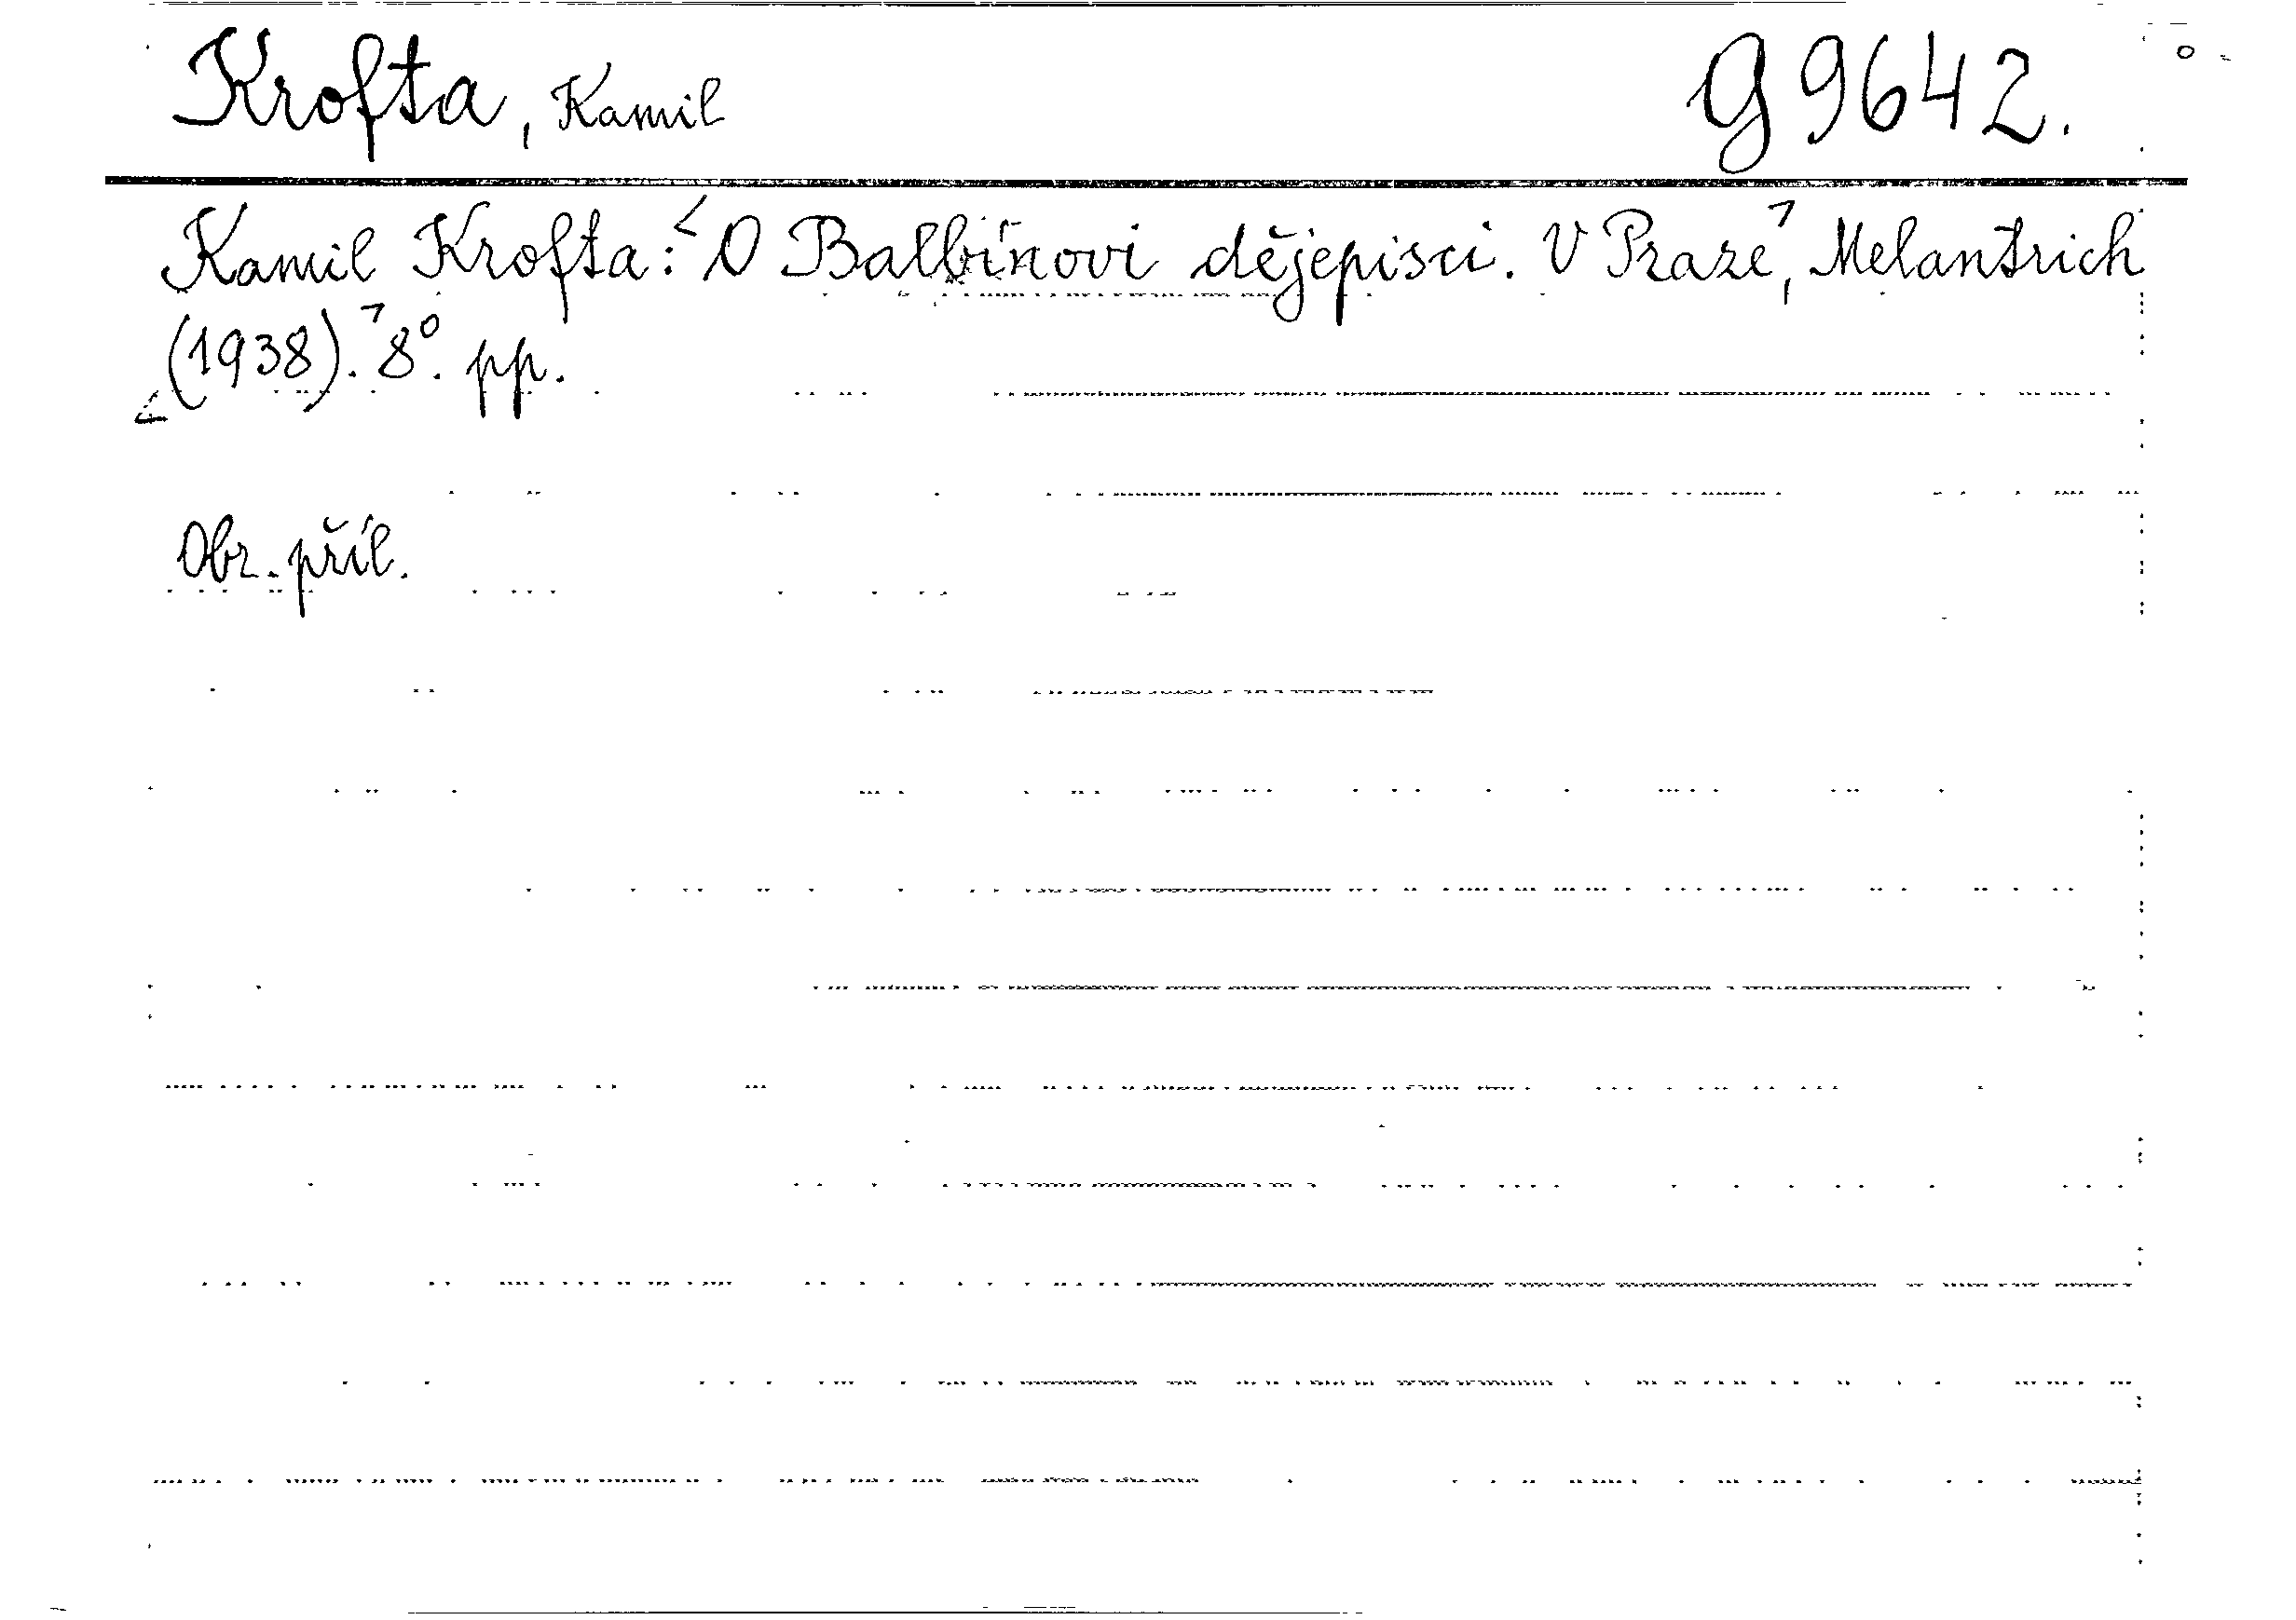 Krofta, Kamil G 9642.
Kamil Krofta: O Balbínovi dějepisci. V Praze, Melantrich
(1938). 8°. pp.
Obr. příl.